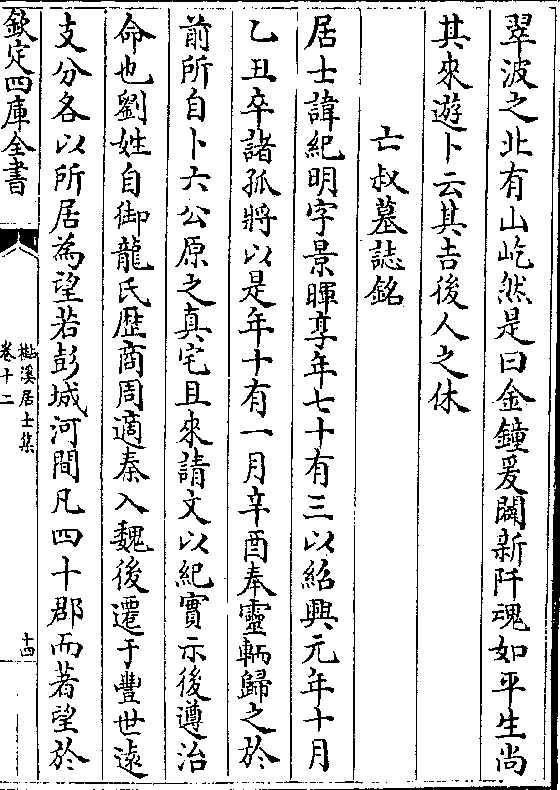 翠波之北有山屹然是曰金鐘爰闢新阡魂如平生尚
其來遊卜云其吉後人之休
亡叔墓誌銘
居士諱紀明字景暉享年七十有三以紹興元年十月
乙丑卒諸孤將以是年十有一月辛酉奉靈輀歸之於
前所自卜六公原之真宅且來請文以紀實示後遵治
命也劉姓自御龍氏歷商周適秦入魏後遷于豐世遠
支分各以所居為望若彭城河間凡四十郡而著望於
欽定四庫全書
檆溪居士集
卷十二
十四